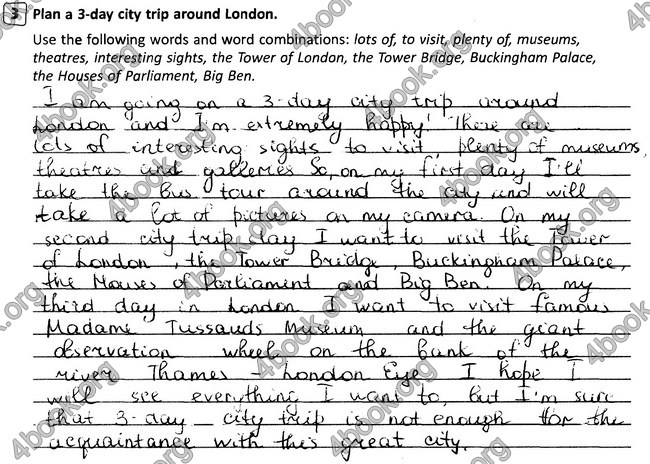 3 Plan a 3-day city trip around London.
Use the following words and word combinations: lots of, to visit, plenty of, museums,
theatres, interesting sights, the Tower of London, the Tower Bridge, Buckingham Palace,
the Houses of Parliament, Big Ben.
I am going on a 3-day city trip around
London and I'm extremely happy! There are
lots of interesting sights to visit, plenty of museums,
theatres and galleries. So, on my first day I'll
take the bus tour around the city and will
take a lot of pictures on my camera. On my
second city trip day I want to visit the Tower
of London, the Tower Bridge, Buckingham Palace,
the Houses of Parliament and Big Ben. On my
third day in London I want to visit famous
Madame Tussauds Museum and the giant
observation wheel on the bank of the
river Thames - London Eye. I hope I
will see everything I want to, but I'm sure
that 3-day city trip is not enough for the
acquaintance with this great city.
4book.org